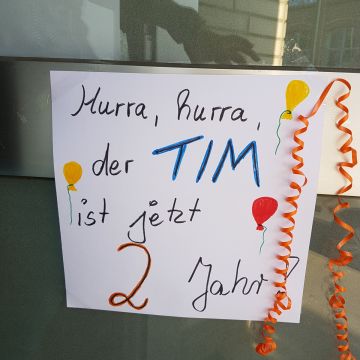 Hurra, hurra,
der TIM
ist jetzt
2 Jahr!